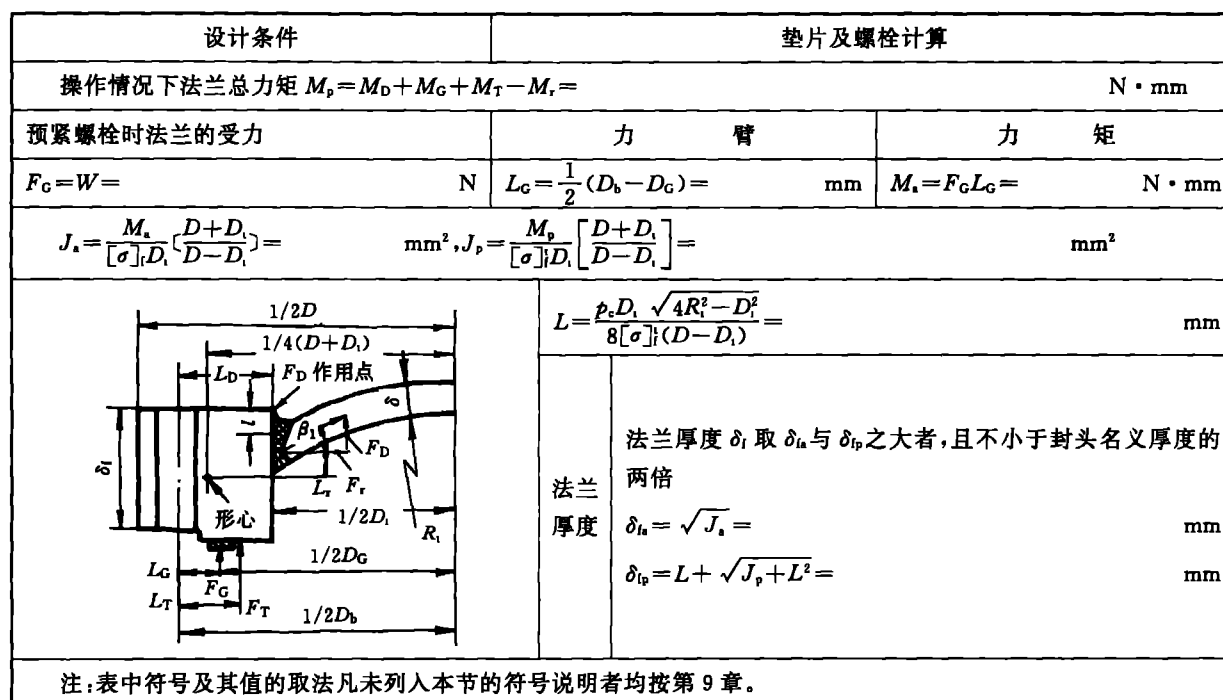 设计条件 垫片及螺栓计算
操作情况下法兰总力矩 Mp=MD+MG+MT-Mr= N·mm
预紧螺栓时法兰的受力 力 臂 力 矩
FG=W= N LG=1/2(Db-DG)= mm Ma=FGLG= N·mm
Ja=Ma/([σ]fDi)[(D+Di)/(D-Di)]= mm²,Jp=Mp/([σ]f^tDi)[(D+Di)/(D-Di)]= mm²
1/2D
1/4(D+Di)
LD
FD 作用点
δ
l
β1
FD
δf
Lr
Fr
形心
1/2Di
Ri
1/2DG
LG
FG
LT
FT
1/2Db
L=pcDi√(4Ri²-Di²)/(8[σ]f^t(D-Di))= mm
法兰
厚度
法兰厚度 δf 取 δfa与 δfp之大者,且不小于封头名义厚度的
两倍
δfa=√Ja= mm
δfp=L+√(Jp+L²)= mm
注:表中符号及其值的取法凡未列入本节的符号说明者均按第 9 章。